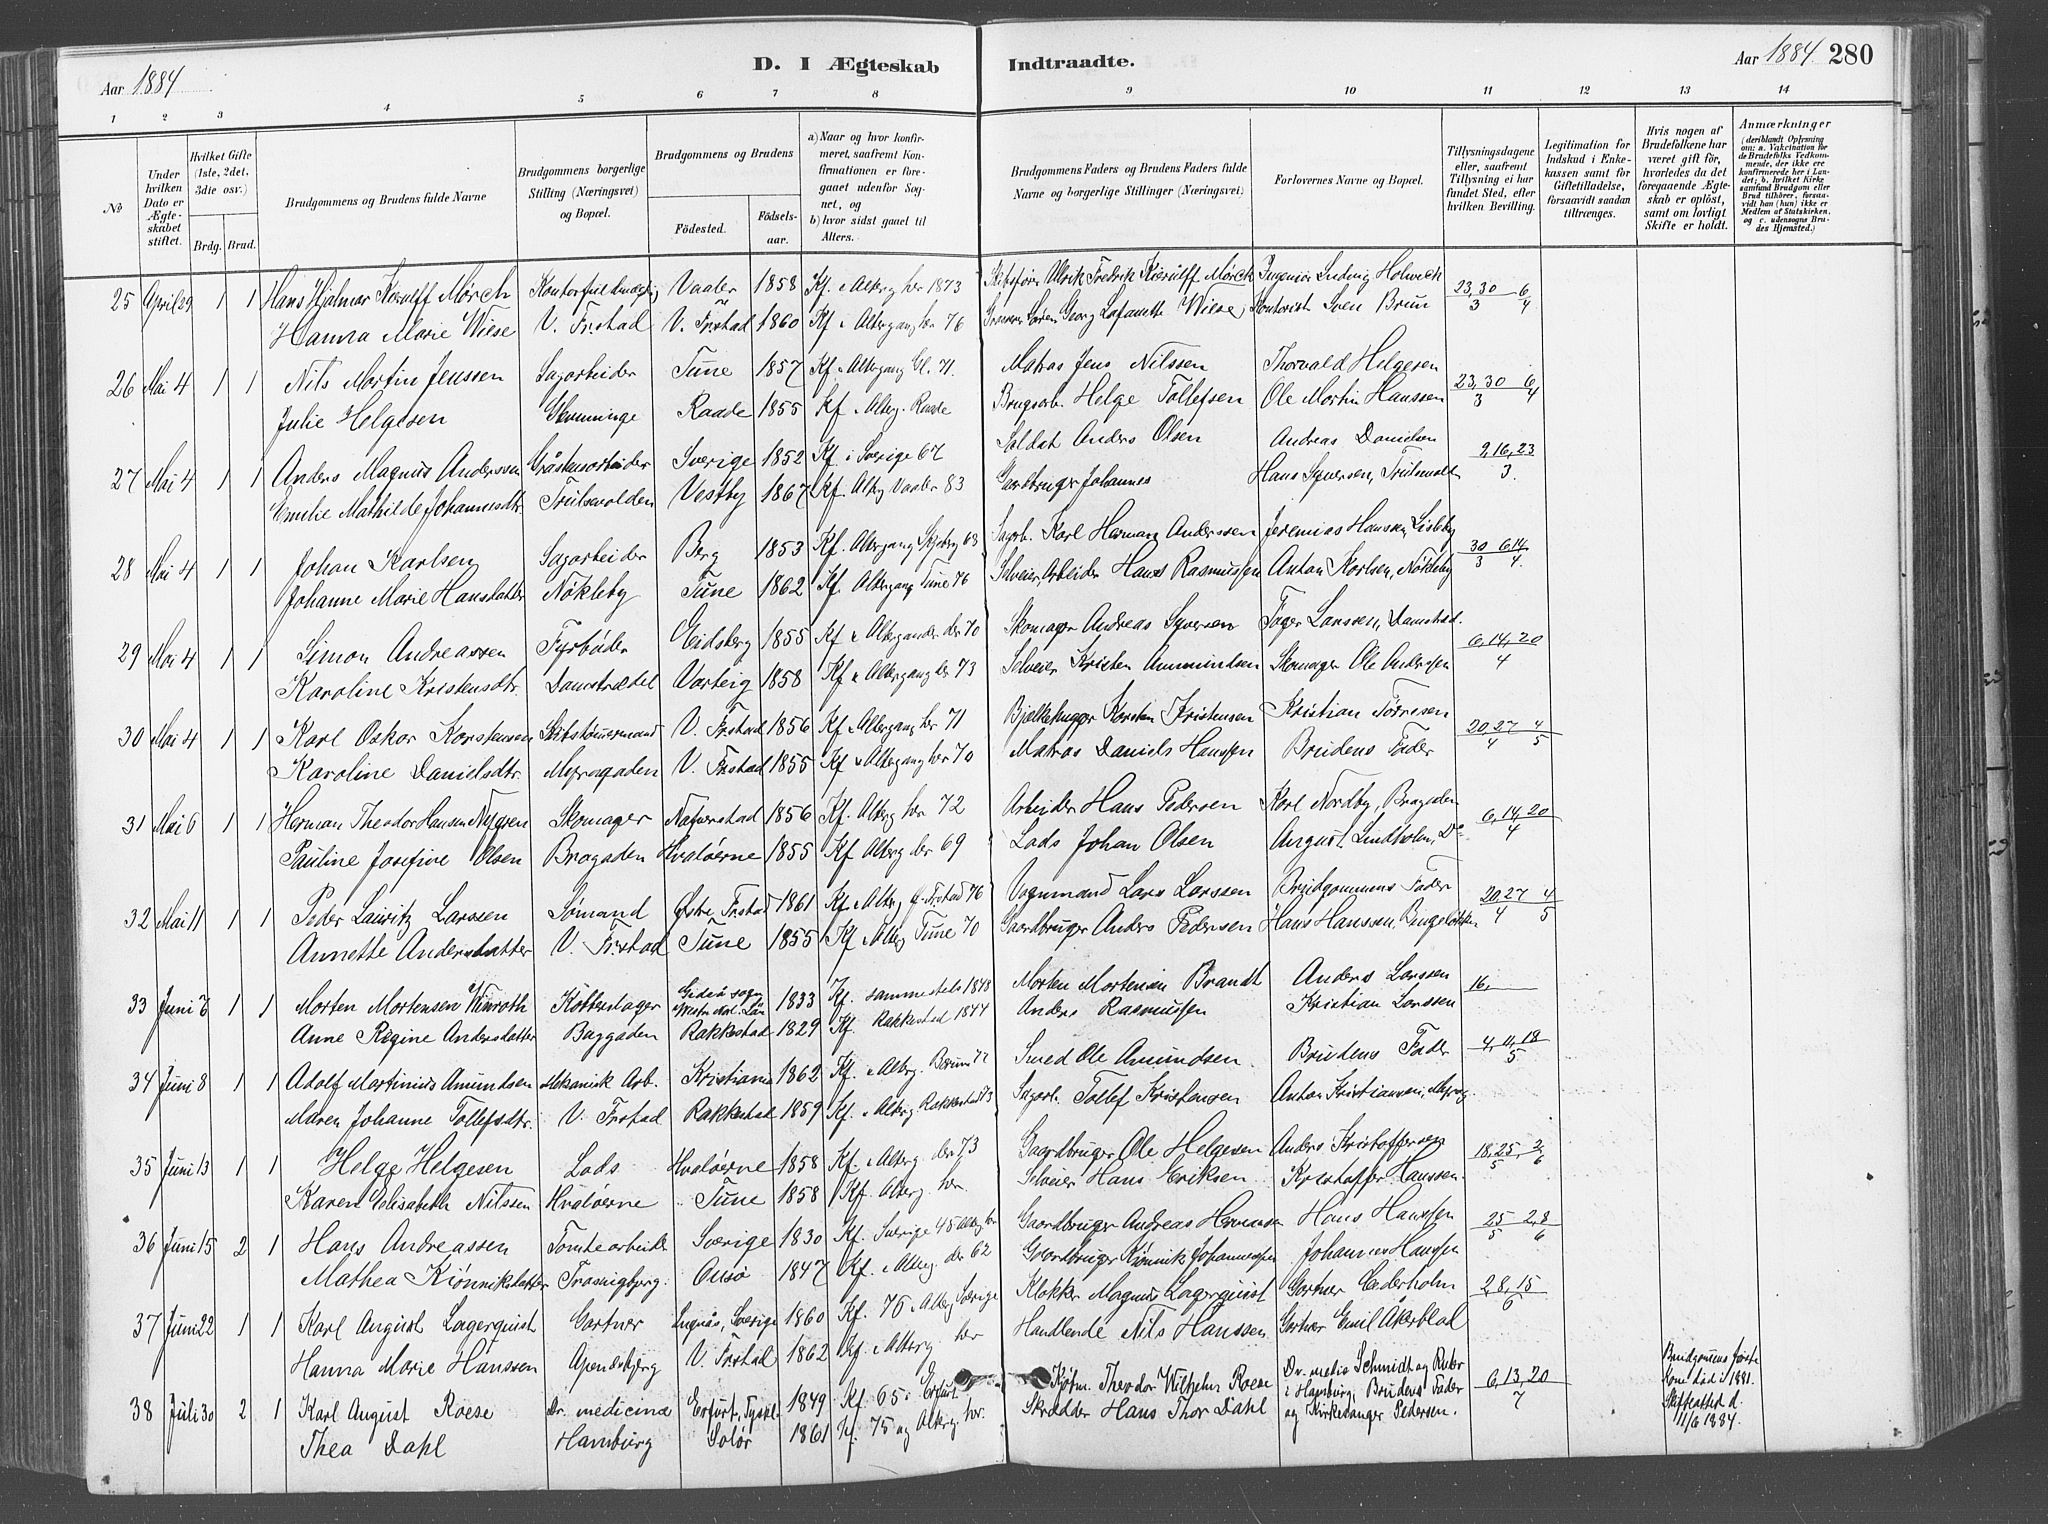 Aar 1884
D. I Ægteskab Indtraadte.
Aar 1884 280
1 2 3 4 5 6 7 8 9 10 11 12 13 14
No
Under hvilken Dato er Ægteskabet stiftet.
Hvilket Gifte (1ste, 2det, 3die osv.)
Brdg. Brud.
Brudgommens og Brudens fulde Navne
Brudgommens borgerlige Stilling (Næringsvei) og Bopæl.
Brudgommens og Brudens
Fødested. Fødselsaar.
a) Naar og hvor konfirmeret, saafremt Konfirmationen er foregaaet udenfor Sognet, og
b) hvor sidst gaaet til Alters.
Brudgommens Faders og Brudens Faders fulde Navne og borgerlige Stillinger (Næringsvei)
Forlovernes Navne og Bopæl.
Tillysningsdagene eller, saafremt Tillysning ei har fundet Sted, efter hvilken Bevilling.
Legitimation for Indskud i Enkekassen samt for Giftetilladelse, forsaavidt saadan tiltrænges.
Hvis nogen af Brudefolkene har været gift før, hvorledes da det foregaaende Ægteskab er opløst, samt om lovligt Skifte er holdt.
Anmærkninger (deriblandt Oplysning om: a. Vakcination for de Brudefolks Vedkommende, der ikke ere konfirmerede her i Landet; b. hvilket Kirkesamfund Brudgom eller Brud tilhører, forsaavidt han (hun) ikke er Medlem af Statskirken, og c. udensogns Brudes Hjemsted.)
25 April 29 1 1 Hans Hjalmar Kierulff Mørch Vaaler 1858 Kf. Alterg her 1873 Skibsfører Ulrik Fredrik Kierulff Mørch Ingeniør Ludvig Holwech 23, 30/3 6/4
Hanna Marie Wiese V. Frstad V. Frstad 1860 Kf. Altergang her 76 Georg Lafayette Wiese, Kontorist Sven Brun
26 Mai 4 1 1 Nils Martin Jenssen Sagarbeider Tune 1857 Kf. Altergang Gl. 71. Matros Jens Nilssen Thorvald Helgesen 23, 30/3 6/4
Julie Helgesen Glemminge Raade 1855 Kf. Alterg. Raade Brugsarb. Helge Tollefsen Ole Martin Hanssen
27 Mai 4 1 1 Anders Magnus Anderssen Gråstensarbeider Sverige 1852 Kf. i Sverige 67 Soldat Anders Olsen Andreas Danielsen 2, 16, 23/3.
Emelie Mathilde Johannesdtr. Trulsevolden Vestby 1867 Kf. Alterg Vaaler 83 Gaardbruger Johannes Hans Syversen,
28 Mai 4 1 1 Johan Karlsen Sagarbeider Berg 1853 Kf. Altergang Skjeberg 68 Sagarb. Karl Herman Anderssen Jeremias Hanssen, Lisleby 30/3 6, 14/4.
Johanne Marie Hansdatter Nøkleby Tune 1862 Kf. Altergang Tune 76 Selveier, Arbeider Hans Rasmussen Anton Karlsen, Nøkleby
29 Mai 4 1 1 Simon Andreassen Fyrbøder Eidsberg 1855 Kf. 70 Skomager Andreas Syversen Larssen, Damstræd. 6, 14, 20/4
Karoline Kristensdtr. Damstrædet Varteig 1858 Kf. Altergang der 73 Selveier Kristen Ammundsen Skomager Ole Anderssen
30 Mai 4 1 1 Karl Oskar Korstensen Skibstømmermand V. Frstad 1856 Kf. Altergang her 71 Bjelkehugger Korsten Kristensen Kristian Tørresen 20, 27/4 4/5
Karoline Danielsdtr. Myragaden V. Frstad 1855 Kf. Altergang her 70 Matros Daniels Hanssen Brudens Fader
31 Mai 6 1 1 Herman Theodor Hansen Nygren Skomager 1856 Kf. Alterg her 72 Arbeider Hans Pedersen Karl Nordby, Bragaden 6, 14, 20/4
Pauline Josefine Olsen Bragaden Hvaløerne 1855 Kf Alterg der 69 Lods Johan Olsen August Lindholm, Do
32 Mai 11 1 1 Peder Lauritz Larssen Sømand Østre Frstad 1861 Kf. Alterg Ø. Frstad 76 Vognmand Lars Larssen Brudgommens Fader 20, 27/4 4/5
Annette Andersdatter V. Frstad Tune 1855 Kf. Alterg Tune 70 Gaardbruger Anders Pedersen Hans Hanssen,
33 Juni 6 1 1 Morten Mortensen Winroth Kottenslager 1833 Kf. sammesteds 1848 Morten Mortensen Brandt Anders Larssen 16,
Anne Regine Andersdatter Baggaden Rakkestad 1829 Kf. Rakkestad 1844 Anders Rasmussen Kristian Larssen
34 Juni 8 1 1 Adolf Martinius Amundsen Mekanisk Arb. Kristiania 1862 Kf. Alterg. Bærum 77 Smed Ole Amundsen. Brudens Fader 4, 11, 18/5
Maren Johanne Tollefsdtr. V. Frstad Rakkestad 1859 Kf. Alterg Rakkestad 73 Sagarb. Tollef Kristensen Anton Kristiansen, Myrag.
35 Juni 13 1 1 Helge Helgesen Lods Hvaløerne 1858 Kf. Alterg. der 73 Gaardbruger Ole Helgesen Anders Kristoffersen 18, 25/5, 2/6
Karen Elisabeth Nilssen Hvaløerne Tune 1858 Kf. Alterg. her. Selveier Hans Eriksen Kristoffer Hanssen.
36 Juni 15 2 1 Hans Andreassen Tomtearbeider Sverige 1830 Kf. Sverige 45 Alterg her Gaardbruger Andreas Hermansen Hans Hanssen 25/5 2, 8/6
Mathea Kiønniksdatter Trosvigbjerg. Onsø 1847 Kf. Alterg. der 62 Gaardbruger Kiønnik Johannessen Johannes Hanssen
37 Juni 22 1 1 Karl August Lagerquist Gartner Sverige 1860 Kf. 76 Alterg Sverige Klokker Magnus Lagerquist Gartner Cederholm 2, 8, 15/6
Hanna Marie Hanssen Apenesbjerg V. Frstad 1862 Kf. Alterg. her Handlende Nils Hanssen Gartner Emil Åkerblad
38 Juli 30 2 1 Karl August Roese Dr. medicina Erfurt, Tyskl. 1849 Kf. 65 i Erfurt Kjøbm. Theodor Wilhelm Roese Dr. media Schmidt og Ruber i Hamburg, Brudens Fader 6, 13, 20/7 Brudgommens første Kone død i 1881. Skifteattest d. 11/6 1884.
Thea Dahl Hamburg Solør 1861 Kf. 75 og Alterg. her. Skrædder Hans Thor Dahl og Kirkesanger Pedersen.